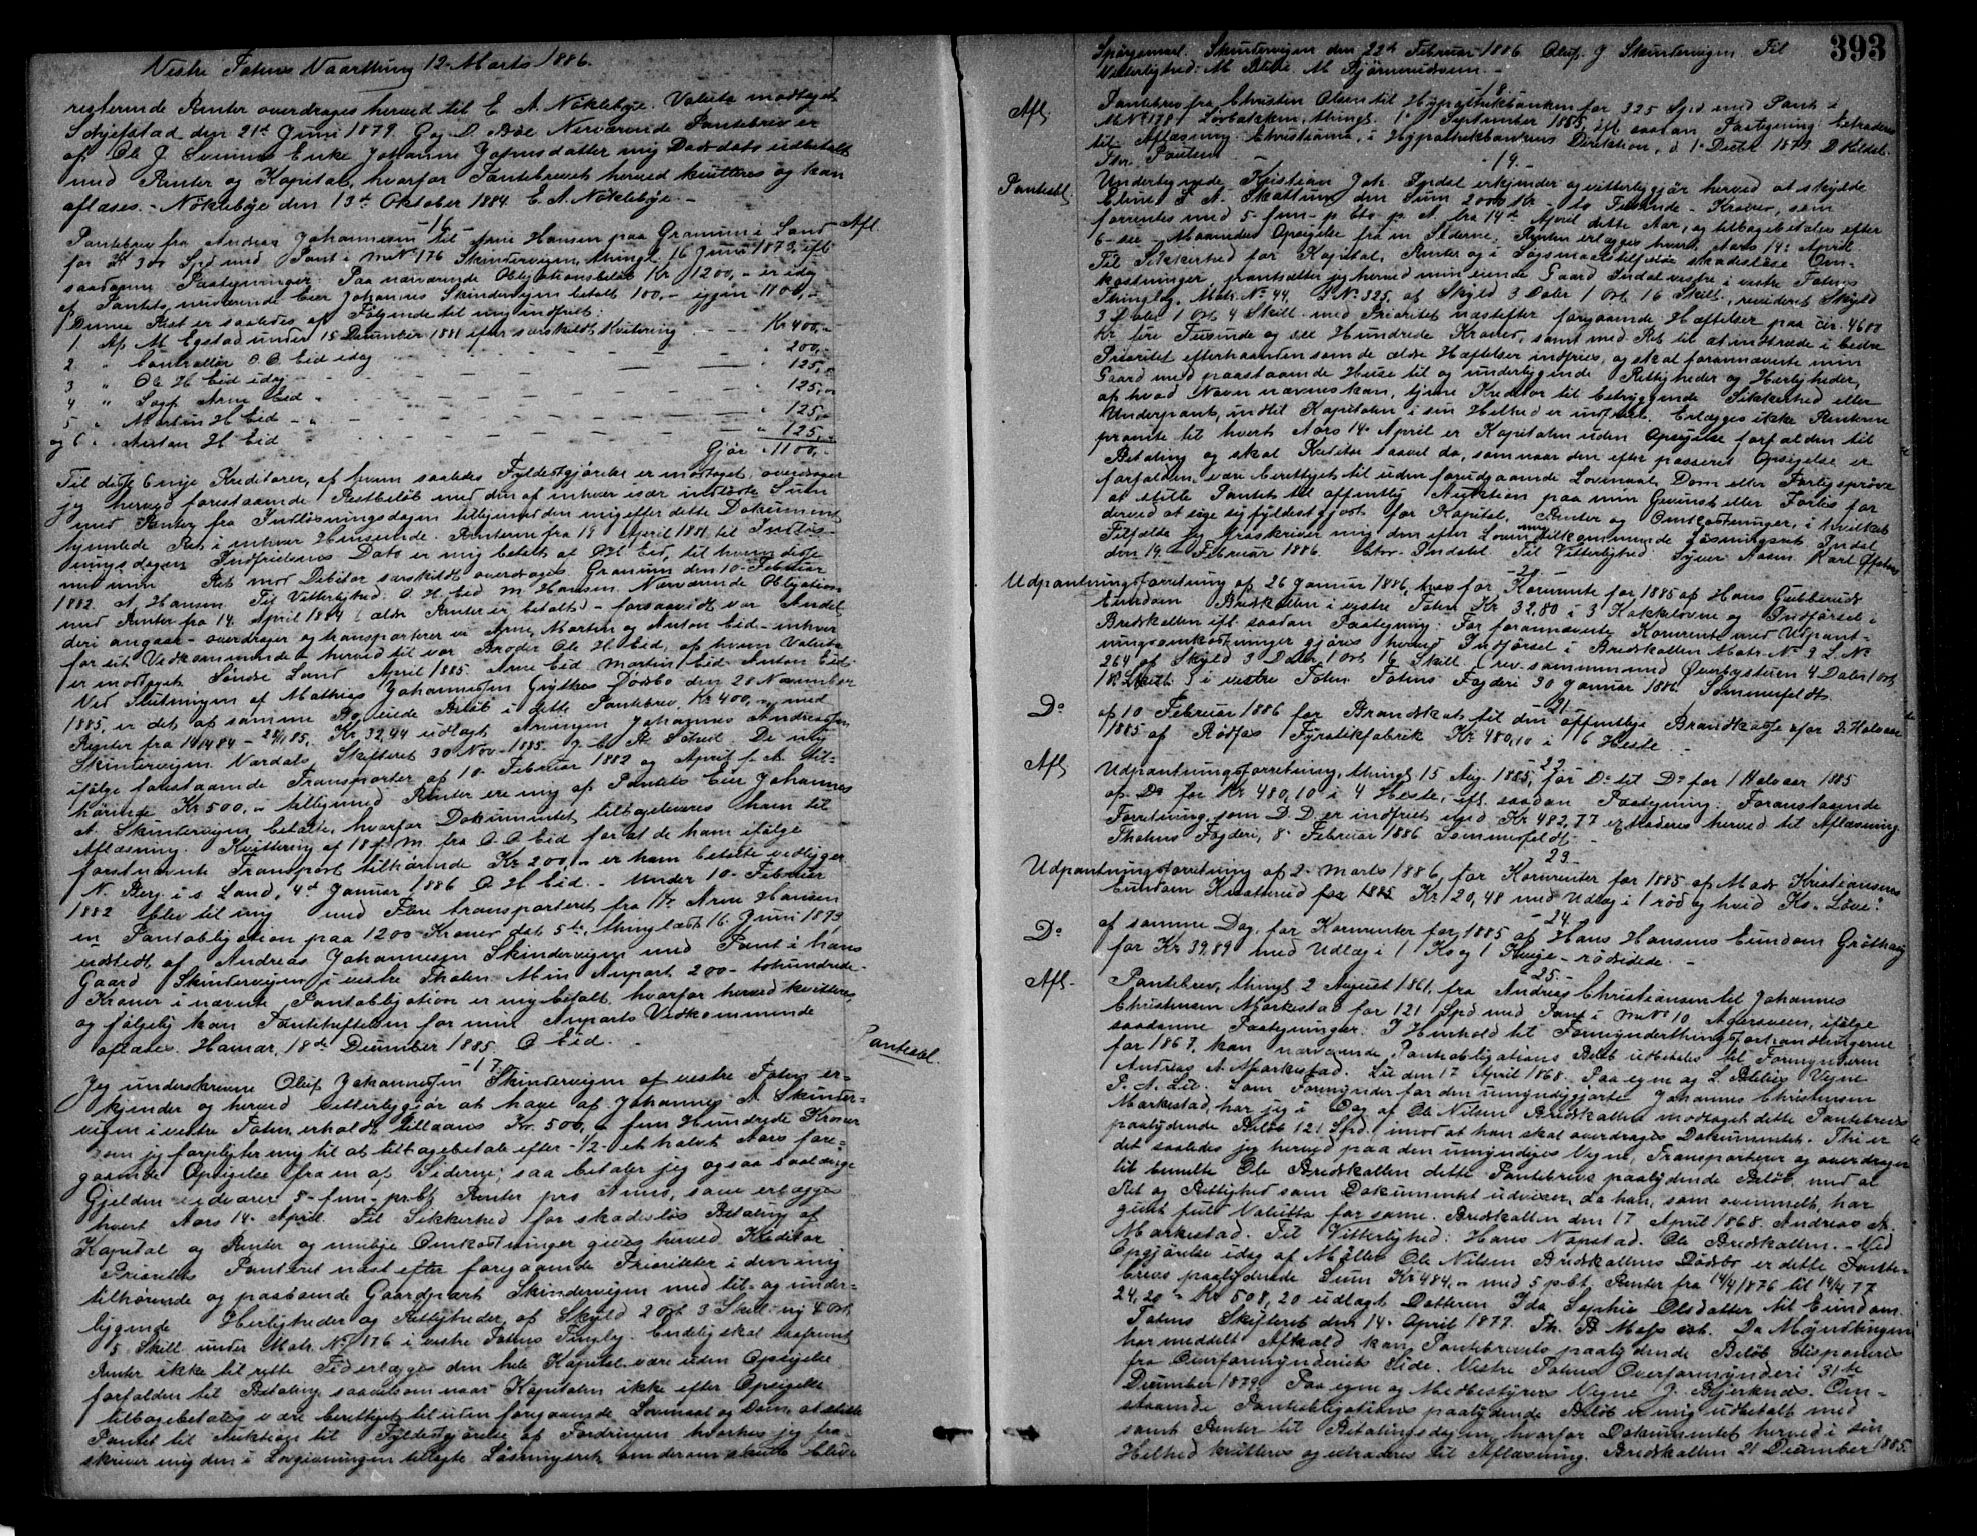 Vestre Totens Vaarthing 12 Marts 1886.
resterende Renter overdrages herved til E. A. Nöklebye. Valuta modtaget
den 21de Juni 1879.
af Ole J. Enke Johanne Johnsdatter mig Dags dato udbetalt
med Renter og Kapital, hvorfor Pantebrevet herved kvitteres og kan
aflæses. - Nöklebye den 13de Oktober 1884. E. A. Nöklebye. -
- 16 - Afl.
Pantebrev fra Andreas Johannesen til Arne Hansen paa Granum i Land
for 300 Spd med Pant i M.No 176 Skindervigen, thingl. 16 Juni 1873, ifl.
saadanne Paategninger: Paa nærværende Obligationsbeløb Kr 1200,- er idag
af Pantets nuværende Eier Johannes Skindervigen betalt 100,- igjen 1100,-
Denne Rest er saaledes af Følgende til mig indfriet:
1 Af M Egstad under 15 December 1881 efter særskildt Kvitering - - Kr 400,-
2 " Controllør O. O. Eid idag - - - " 200,-
3 " Ole H Eid idag - - - " 125,-
4 " Sagf. Arne Eid - - - - " 125,-
5 " Martin H Eid - " - - - " 125,-
og 6 " Anton H Eid - - - - " 125,-
Gjør " 1100,-
Til disse 6 nye Kreditorer, af hvem saaledes Fyldestgjørelse er modtaget, overdrager
jeg herved forestaaende Restbeløb med den af enhver især indløste Sum
med Renter fra Indløsningsdagen tilligemed den mig efter dette Dokument
hjemlede Ret i enhver Henseende. Renterne fra 14 April 1881 til Indløs-
ningsdagen Indfrielsens Dato er mig betalt af Ole Eid, til hvem disse
med min Ret mod Debitor særskildt overdrages. Granum den 10 Februar
1882. A. Hansen. Til Vitterlighed: O. H. Eid M Hansen. Nærværende Obligation
med Renter fra 14 April 1884 (ældre Renter er betalte) - forsaavidt vor Andel
deri angaar - overdrager og transporterer vi Arne, Martin og Anton Eid - enhver
for sit Vedkommende herved til vor Broder Ole H Eid, af hvem Valuta
er modtaget. Søndre Land April 1885. Arne Eid. Martin Eid. Anton Eid.
Ved Slutningen af Mathias Johannesen Dødsbo den 28 November
1885, er det af samme Bo eiede Beløb i dette Pantebrev, Kr 400,- med
Renter fra 14/4 84 - 28/11 85, Kr. 32,44 udlagt Arvingen Johannes Andreasen
Skindervigen. Vardals Skifteret 30 Nov 1885. De mig
ifølge foestaaende Transporter af 10 Februar 1882 og April f. A. til-
hørende Kr 500,- tilligemed Renter ere mig af Pantets Eier Johannes
A. Skindervigen betalte, hvorfor Dokumentet tilbageleveres ham til
Aflæsning. Kvittering af 18 f. M. fra O. O. Eid for at de ham ifølge
førstnævnte Transport tilhørende Kr 200,- er ham betalte vedligger.
N. Berg i s. Land, 4de Januar 1886 O H Eid. - Under 10 Februar
1882 blev til mig med Flere transporteret fra Hr. Arne Hansen
en Pantobligation paa 1200 Kroner dat. 5te, thinglæst 16 Juni 1873
udstedt af Andreas Johannesen Skindervigen med Pant i hans
Gaard Skindervigen i vestre Thoten. Min Anpart 200 - tohundrede -
Kroner i nævnte Pantobligation er mig betalt hvorfor herved kvitteres
og følgelig kan Panteheftelsen for min Anparts Vedkommende
aflæses. Hamar, 18de December 1885. O Eid. -
- 17 - Panteobl.
Jeg underskrevne Oluf Johannesen Skindervigen af vestre Toten er-
kjender og herved vitterliggjør at have af Johannes A Skinder-
vigen i vestre Toten erholdt tillaans Kr. 500,- fem Hundrede Kroner
som jeg forpligter mig til at tilbagebetale efter - 1/2 - et halvt Aars fore-
gaaende Opsigelse fra en af Siderne; saa betaler jeg ogsaa saalænge
Gjelden vedvarer 5 - fem - prCt. Renter pro Anno, som erlægges
hvert Aars 14 April. Til Sikkerhed for skadesløs Betaling af
Kapital og Renter og mulige Omkostninger gives herved Kreditor
Prioritets Panteret næst efter foregaaende Prioriteter i den mig
tilhørende og paaboende Gaardpart Skindervigen med til- og under-
liggende Herligheder og Rettigheder, af Skyld 2 Ort 3 Skill. ny 4 Ort
5 Skill. under Matr. No 176 i vestre Totens Tinglag. Endelig skal saafremt
Renter ikke til rette Tid erlægges den hele Kapital være uden Opsigelse
forfalden til Betaling saavelsom naar Kapitalen ikke efter Opsigelse
tilbagebetales være berettiget til uden foregaaende Søvemaal og Dom at stille
Pantet til Auktion til Fyldestgjørelse af Fordringen hvorhos jeg fra-
skriver mig den i Lovgivningen tillagte Løsningsret, om derom skulde blive
393
Spørgsmaal. Skindervigen den 22de Februar 1886. Oluf J Skindervigen. Til
Vitterlighed: M. Blilie. M Bjørnerudsveen. -
- 18 -
Afl. Pantebrev fra Christen Olsen til Hypothekbanken for 325 Spd med Pant i
M.No 178 Løvbakken, thingl. 1 September 1855, ifl. saadan Paategning: Extraderes
til Aflæsning. Christiania, i Hypothekbankens Direktion, d. 1 Decbr 1873. D. Hildal
Thr. Paulsen
- 19 -
Panteobl. Undertegnede Kristian Joh. Indal erkjender og vitterliggjør herved at skylde
Eline L. A. Skattum den Sum 2000 Kr - to Tusinde - Kroner, som
forrentes med 5 - fem - p. Cto p. A. fra 14de April dette Aar, og tilbagebetales efter
6 - sex - Maaneders Opsigelse fra en af Siderne. Renten erlægges hvert Aars 14 April.
Til Sikkerhed for Kapital, Renter og i Søgsmaalstilfælde skadesløse Om-
kostninger pantsætter jeg herved min eiende Gaard Indal vestre, i vestre Totens
Thinglag, Matr. No 44, L. No 325, af Skyld 3 Daler 1 Ort 16 Skill., revideret Skyld
3 Daler 1 Ort 4 Skill. med Prioritet næstefter foregaaende Hæftelser paa cir. 4600
Kr. fire Tusinde og sex Hundrede Kroner, samt med Ret til at indtræde i bedre
Prioritet efterhaanden som de ældre Hæftelser indfries, og skal forannævnte min
Gaard med paastaaende Huse til og underliggende Rettigheder og Herligheder,
af hvad Navn nævnes kan, tjene Kreditor til betryggende Sikkerhed eller
Underpant, indtil Kapitalen i sin Helhed er indfriet. Erlægges ikke Renterne
promte til hvert Aars 14 April er Kapitalen uden Opsigelse forfalden til
Betaling og skal Kreditor saavel da, som naar den efter passeret Opsigelse er
forfalden være berettiget til uden foregaaende Lovmaal, Dom eller Forligsprøve
at stille Pantet til offentlig Auktion paa min Gevinst eller Forlis for
derved at søge sig fyldestgjort for Kapital, Renter og Omkostninger, i hvilket
Tilfælde jeg fraskriver mig den efter Loven mig tilkommende Løsningsret. Indal
den 14 Februar 1886. Chr. Indahl. Til Vitterlighed: Syver Aasen. Karl Øfsteng
- 20 -
Udpantningsforretning af 26 Januar 1886, for Kornrente for 1885 af Hans Gubberuds
Eiendom Bredkallen i vestre Toten Kr 32,80 i 3 Kakkelovne og Indførsel i
Bredkallen ifl. saadan Paategning: For forannævnte Kornrente med Udpant-
ningsomkostninger gjøres herved Indførsel i Bredkallen Matr. No 9 L. No
264 af Skyld 3 Daler 1 Ort 16 Skill (rev. sammen med Øverbysturen 4 Daler 1 Ort
18 Skill) i vestre Toten. Totens Fogderi 30 Januar 1886 Sommerfeldt
- 21 -
Do af 10 Februar 1886 for Brandskat til den offentlige Brandkasse for 2 Halvaar
1885 af Rødfos Fyrstikfabrik Kr 480,10 i 6 Heste. -
- 22 -
Afl. Udpantningsforretning, thingl. 15 Aug. 1885, for Do til Do for 1 Halvaar 1885
af Do for Kr 480,10 i 4 Heste, ifl. saadan Paategning: Foranstaaende
Forretning, som D. D. er indfriet med Kr 482,77 extraderes herved til Aflæsning.
Thotens Fogderi, 8 Februar 1886 Sommerfeldt -
- 23 -
Udpantningsforretning af 2 Marts 1886, for Kornrenter for 1885 af Mads Kristiansens
Eiendom Knatterud for 1885 Kr 120,48 med Udlæg i 1 rød og hvid Ko "Løvei".
- 24 -
Do af samme Dag, for Kornrenter for 1885 af Hans Hansens Eiendom Grøthaug
for Kr 39,89 med Udlæg i 1 Ko og 1 Kvige - rødsidede. -
- 25 -
Afl. - Pantebrev, thingl. 2 August 1861, fra Andreas Christiansen til Johannes
Christensen Markestad for 121 Spd med Pant i M.No 10 Agersveen, ifølge
saadanne Paategninger: I Henhold til Formynderthingsforhandlingerne
for 1867, kan nærværende Panteobligations Beløb udbetales til Formynderen
Andreas A Markestad. Lie den 17 April 1868. Paa egne og L. Blilies Vegne
P. A. Lie. Som Formynder for den umyndiggjorte Johannes Christensen
Markestad, har jeg i Dag af Ole Nilsen Bredkallen modtaget dette Pantebrevs
paalydende Beløb 121 Spd. imod at han skal overdrages Dokumentet. Thi er
det saaledes jeg herved paa den umyndiges Vegne, Transporterer og overdrager
til bemeldte Ole Bredkallen dette Pantebrevs paalydende Beløb, med al
Ret og Rettighed som Dokumentet udviser, da han, som ovenmeldt, har
givet fuld Valutta for same. Bredkallen den 17 April 1868. Andreas A.
Markestad. Til Vitterlighed: Hans Narstad. Ole Bredkallen. - Ved
Opgjørelse idag af Møller Ole Nilsen Bredkallens Dødsbo er dette Pante-
brevs paalydende Sum Kr 484,- med 5 prCt. Renter fra 14/4 1876 til 14/4 77
24,20 - Kr 508,20 udlagt Datteren Ida Sophie Olsdatter til Eiendom.
Totens Skifteret den 14 April 1877. Th. B. Mass cst. Da Myndlingen
har meddelt Afkald kan Pantebrevets paalydende Beløb disponeres
fra Overformynderiets Side. Vestre Totens Overformynderi 31te
December 1879. Paa egne og Medbestyrers Vegne J. Bjerknes. Om-
staaende Pantobligations paalydende Beløb er mig udbetalt med
samt Renter til Betalingsdagen, hvorfor Dokumentet herved i sin
Helhed kvitteres og extraderes til Aflæsning. Bredkallen 21 December 1885.